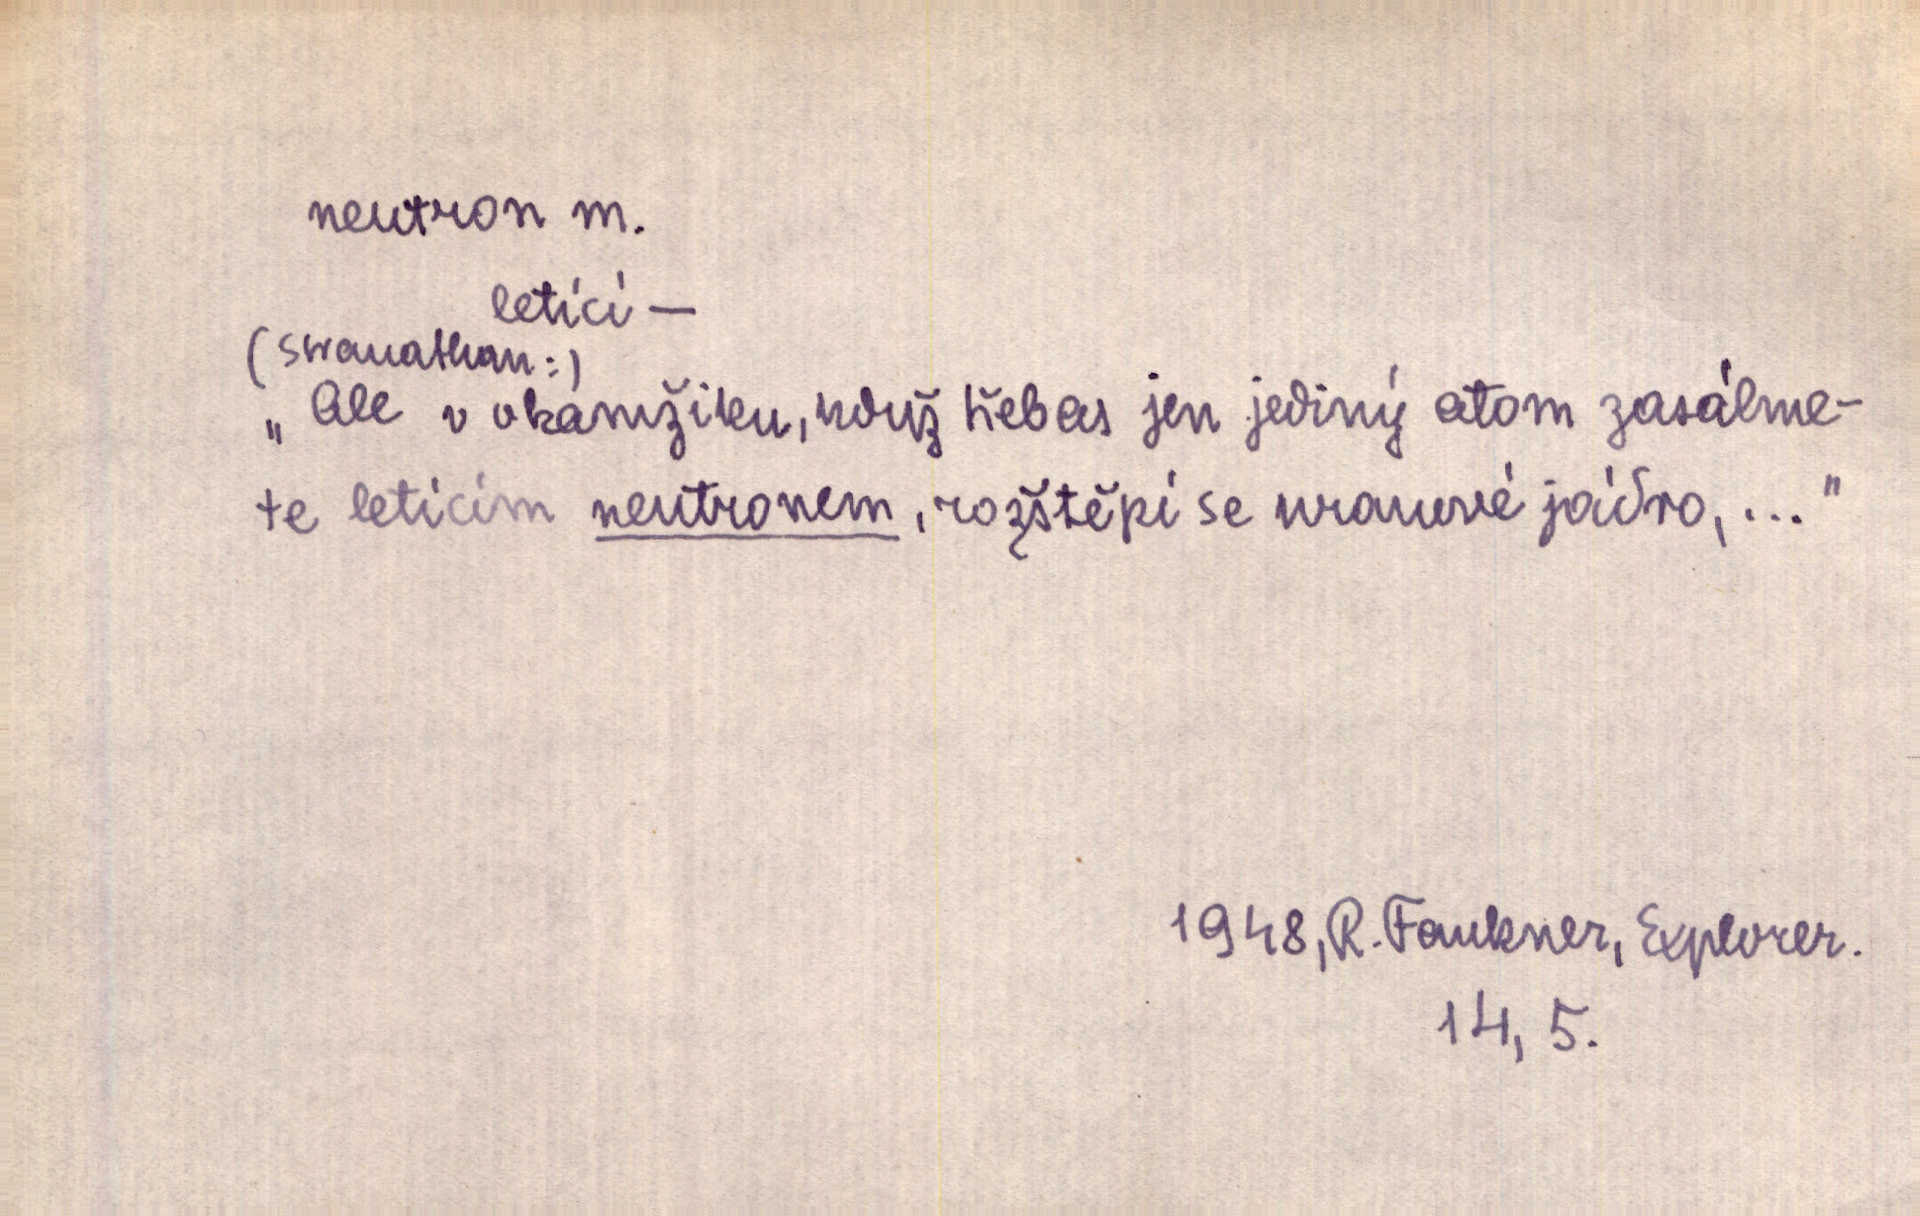 neutron m.
letící —
(Swanathan:)
„Ale v okamžiku, když třebas jen jediný atom zasáhne-
te letícím neutronem, rozštěpí se uranové jádro, ..."
1948, R. Faukner, Explorer.
14, 5.